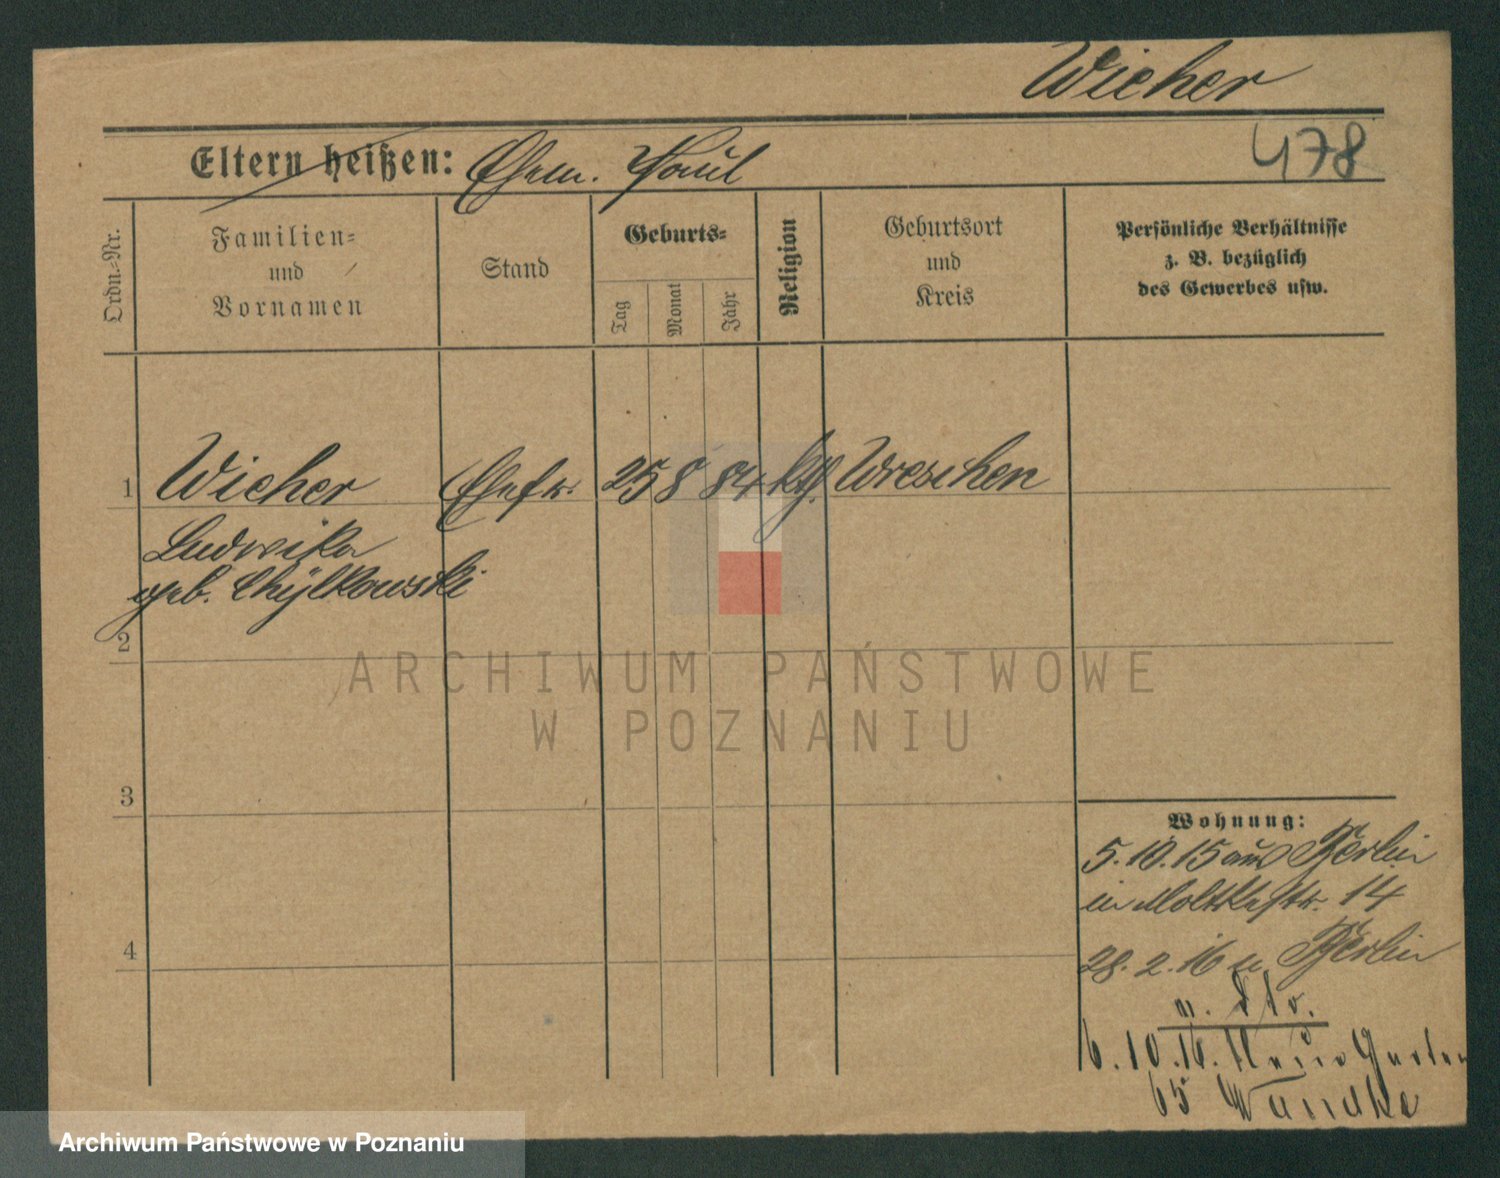 Wicher
478
Eltern heißen: Ehem. Paul
Ordn.=Nr.
Familien=
und
Vornamen
Stand
Geburts=
Tag
Monat
Jahr
Religion
Geburtsort
und
Kreis
Persönliche Verhältnisse
z. B. bezüglich
des Gewerbes usw.
1 Wicher Ehefr. 25 8 84 kth. Wreschen
Ludwika
geb. Chylkowski
2
ARCHIWUM PAŃSTWOWE
W POZNANIU
3
Wohnung:
5.10.15 aus Berlin
in Moltkestr. 14
4
28.2.16 n. Berlin
6.10.16. Neue Garten
65
Archiwum Państwowe w Poznaniu